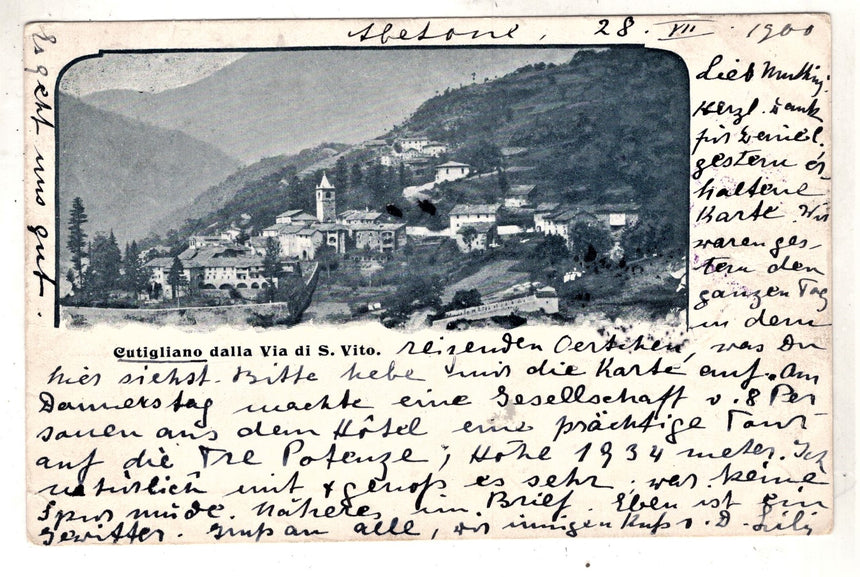 Abetone, 28. VII 1900
Lieb Mutting.
Herzl. Dank
für Deine l.
gestern er
haltene
Karte. Wir
waren ges-
tern den
ganzen Tag
in dem
Cutigliano dalla Via di S. Vito. reizenden Oertchen, was Du
hier siehst. Bitte hebe mir die Karte auf. Am
Donnerstag machte eine Gesellschaft v. 8 Per
sonen aus dem Hôtel eine prächtige Tour
auf die Tre Potenze, Höhe 1934 meter. Ich
natürlich mit & genoß es sehr. war keine
Spur müde. Näheres im Brief. Eben ist ein
Gewitter. Gruß an alle, innigen Kuß v. D. Lily
Es geht uns gut.